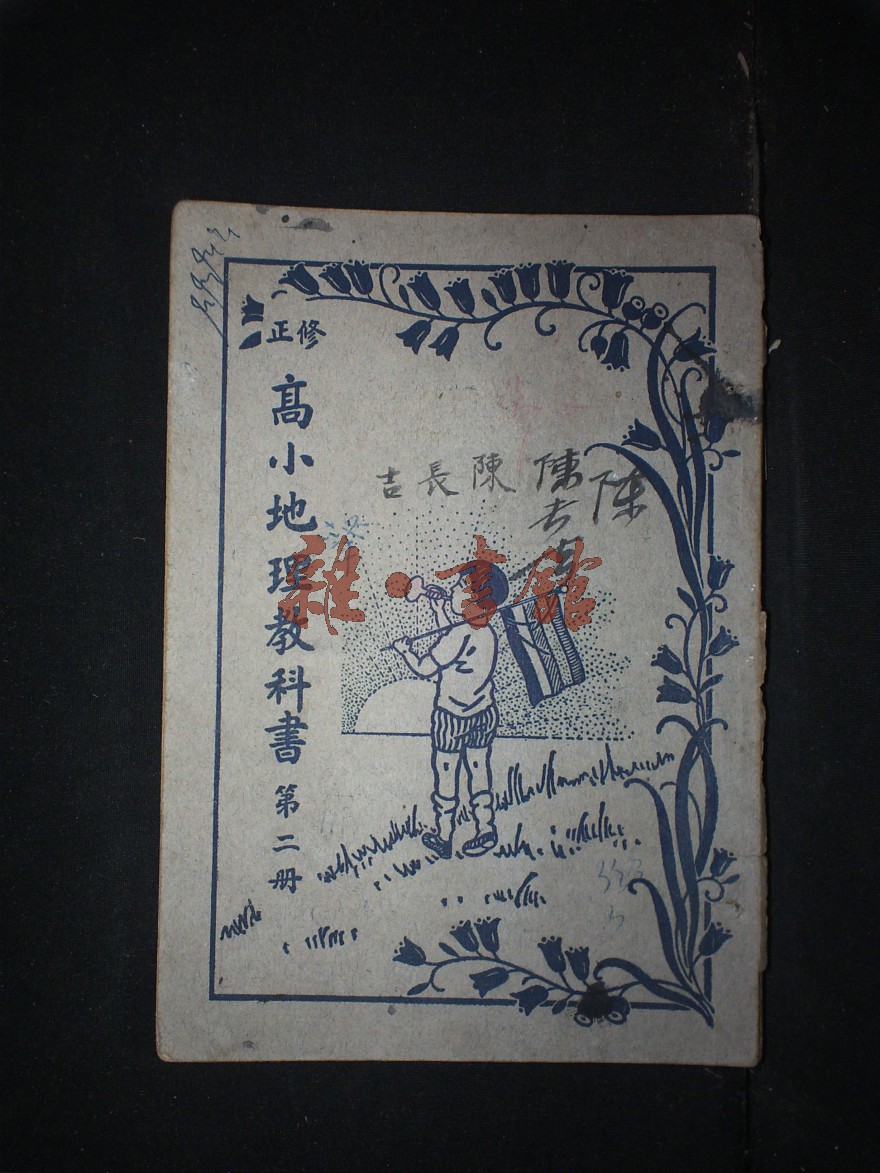 修正
高小地理教科書 第二冊
陳長吉
陳
陳吉
雜·書館